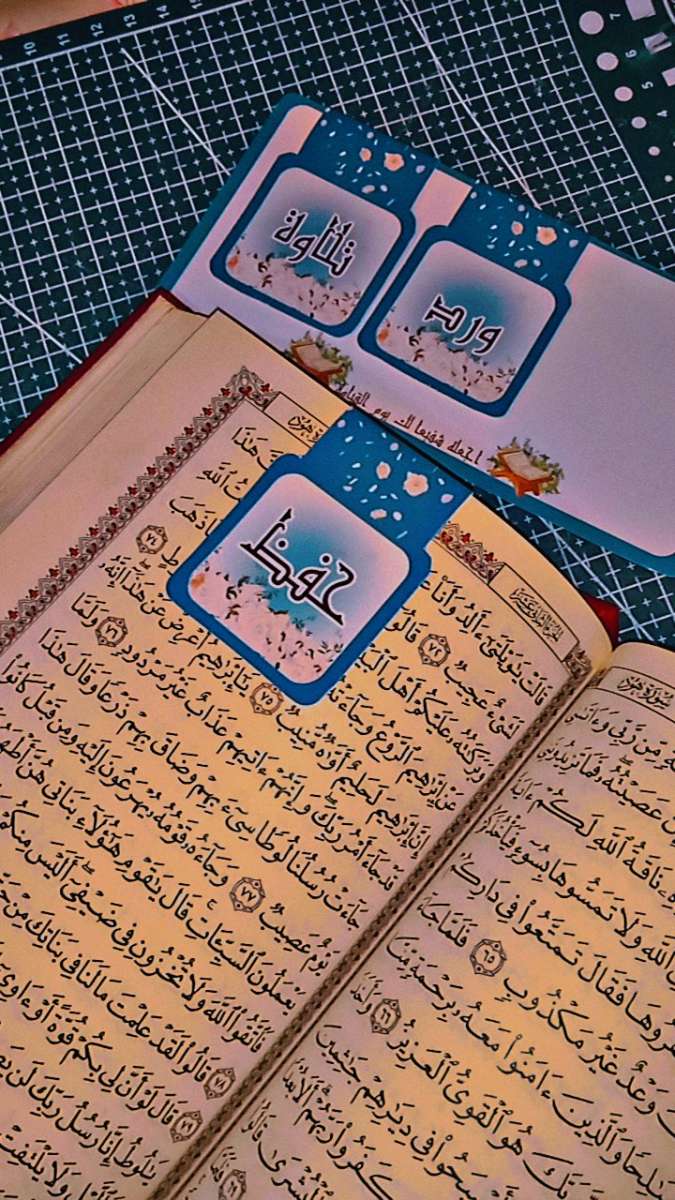 تلاوة
ورد
اجعله شفيعا لك يوم
حفظ
سُورَةُ هُودٍ
مِّن رَّبِّي وَءَاتَىٰنِي
عَصَيْتُهُۥ فَمَا تَزِيدُونَنِي
نَاقَةُ ٱللَّهِ لَكُمْ ءَايَةً
ٱللَّهِ وَلَا تَمَسُّوهَا بِسُوٓءٍ فَيَأْخُذَكُمْ
فَقَالَ تَمَتَّعُوا۟ فِى دَارِكُمْ
وَعْدٌ غَيْرُ مَكْذُوبٍ ٦٥ فَلَمَّا جَآءَ
وَٱلَّذِينَ ءَامَنُوا۟ مَعَهُۥ بِرَحْمَةٍ مِّنَّا
هُوَ ٱلْقَوِىُّ ٱلْعَزِيزُ ٦٦ وَأَخَذَ
فِى دِيَٰرِهِمْ جَٰثِمِينَ
كَفَرُوا۟ رَبَّهُمْ أَلَا بُعْدًا
قَالَتْ يَٰوَيْلَتَىٰٓ ءَأَلِدُ وَأَنَا۠ هَٰذَا
لَشَىْءٌ عَجِيبٌ ٧٢ قَالُوٓا۟ ٱللَّهِ
وَبَرَكَٰتُهُۥ عَلَيْكُمْ أَهْلَ ٱلْبَيْتِ ذَهَبَ
عَنْ إِبْرَٰهِيمَ ٱلرَّوْعُ وَجَآءَتْهُ ٧٤
إِنَّ إِبْرَٰهِيمَ لَحَلِيمٌ أَوَّٰهٌ مُّنِيبٌ ٧٥ يَٰٓإِبْرَٰهِيمُ أَعْرِضْ عَنْ هَٰذَآ إِنَّهُۥ
قَدْ جَآءَ أَمْرُ رَبِّكَ وَإِنَّهُمْ ءَاتِيهِمْ عَذَابٌ غَيْرُ مَرْدُودٍ ٧٦ وَلَمَّا
جَآءَتْ رُسُلُنَا لُوطًا سِىٓءَ بِهِمْ وَضَاقَ بِهِمْ ذَرْعًا وَقَالَ هَٰذَا
يَوْمٌ عَصِيبٌ ٧٧ وَجَآءَهُۥ قَوْمُهُۥ يُهْرَعُونَ إِلَيْهِ وَمِن قَبْلُ كَانُوا۟
يَعْمَلُونَ ٱلسَّيِّـَٔاتِ قَالَ يَٰقَوْمِ هَٰٓؤُلَآءِ بَنَاتِى هُنَّ أَطْهَرُ
فَٱتَّقُوا۟ ٱللَّهَ وَلَا تُخْزُونِ فِى ضَيْفِىٓ أَلَيْسَ مِنكُمْ
٧٨ قَالُوا۟ لَقَدْ عَلِمْتَ مَا لَنَا فِى بَنَاتِكَ مِنْ حَقٍّ
٧٩ قَالَ لَوْ أَنَّ لِى بِكُمْ قُوَّةً أَوْ ءَاوِىٓ
يَٰلُوطُ إِنَّا رُسُلُ رَبِّكَ لَن